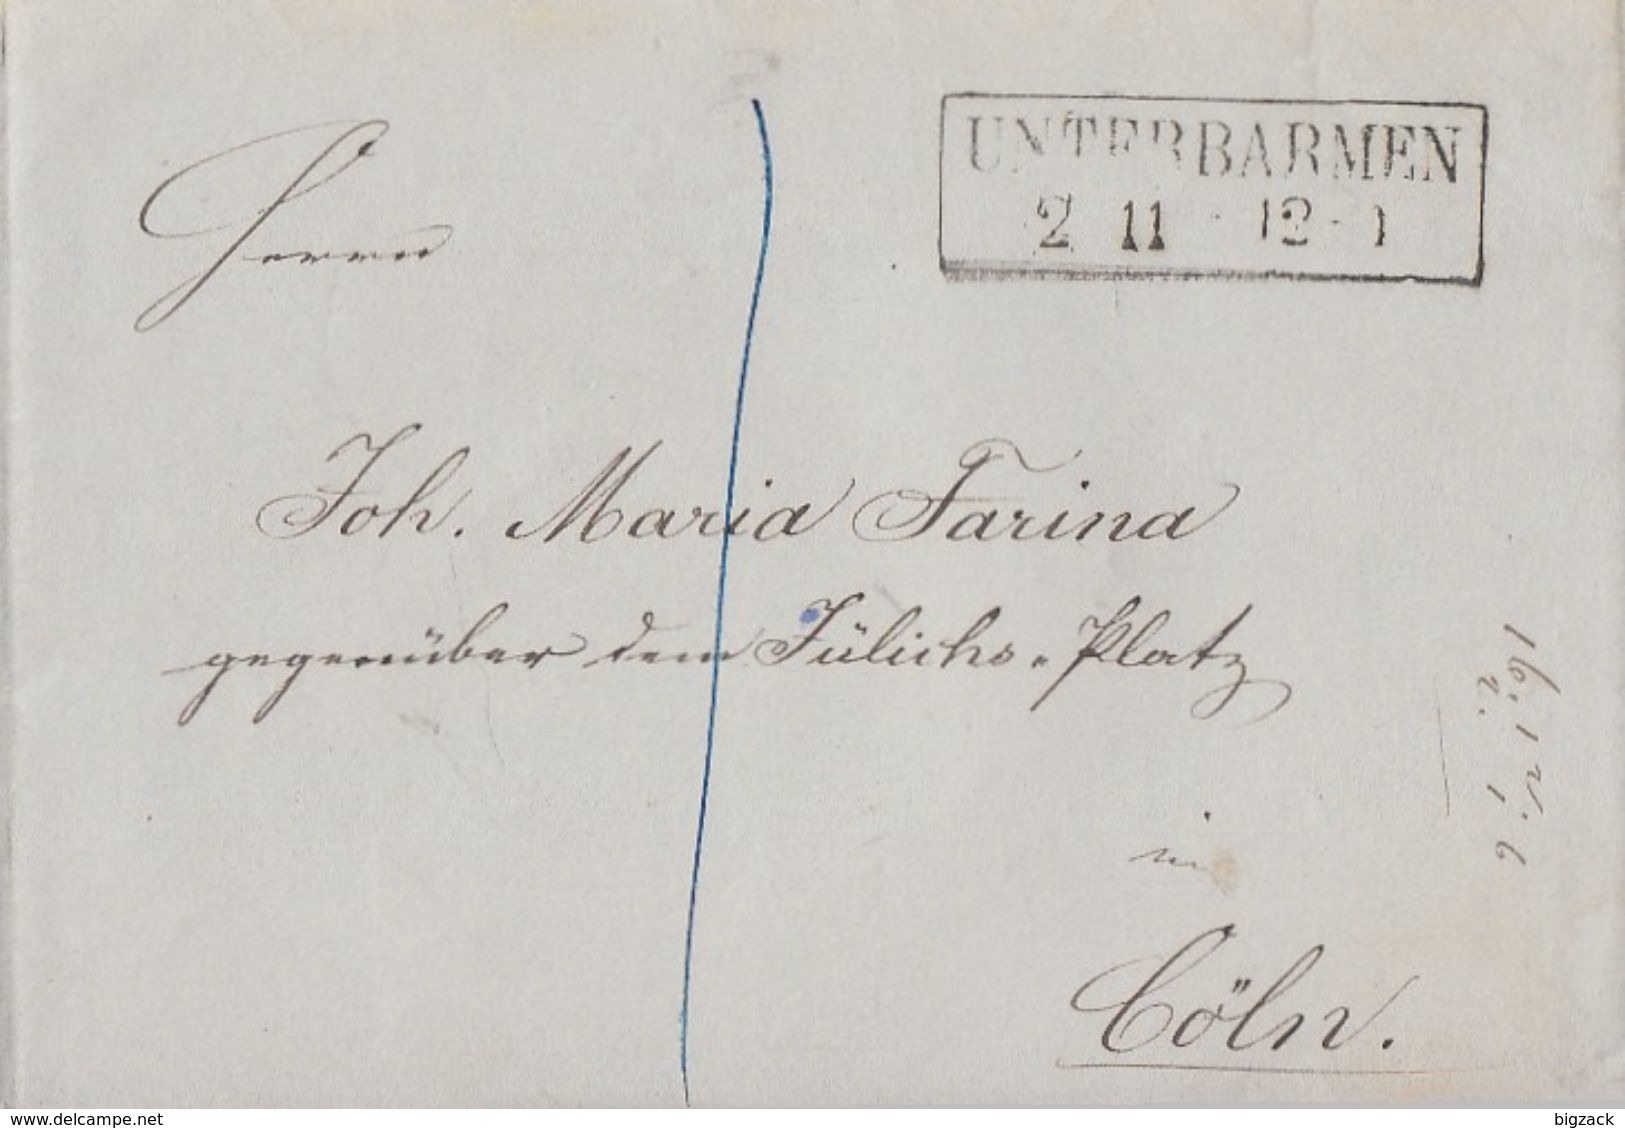 UNTERBARMEN
2 11 · 12-1
Herrn
Joh. Maria Farina
gegenüber dem Jülichs-Platz
in
Cöln.
www.delcampe.net
bigzack